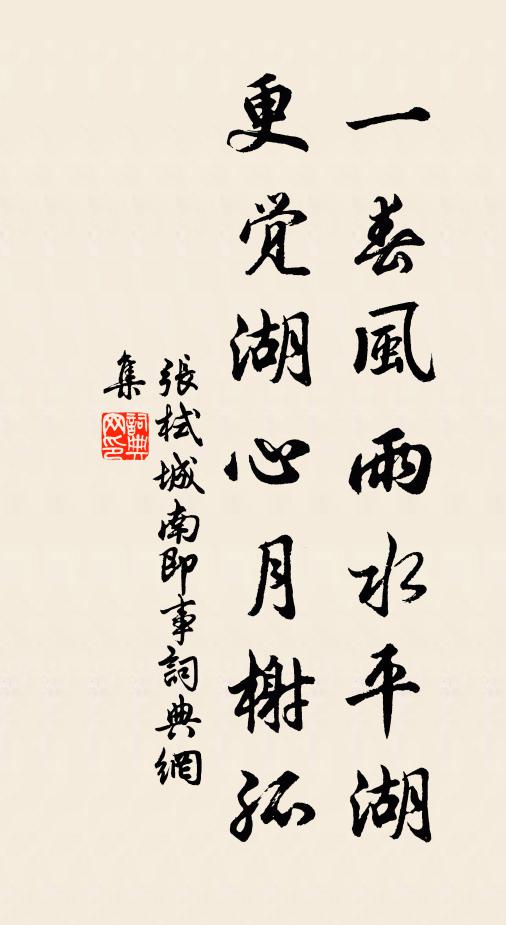 一春風雨水平湖
更觉湖心月榭孤
張栻城南即事詞典網
集
詞典
网印